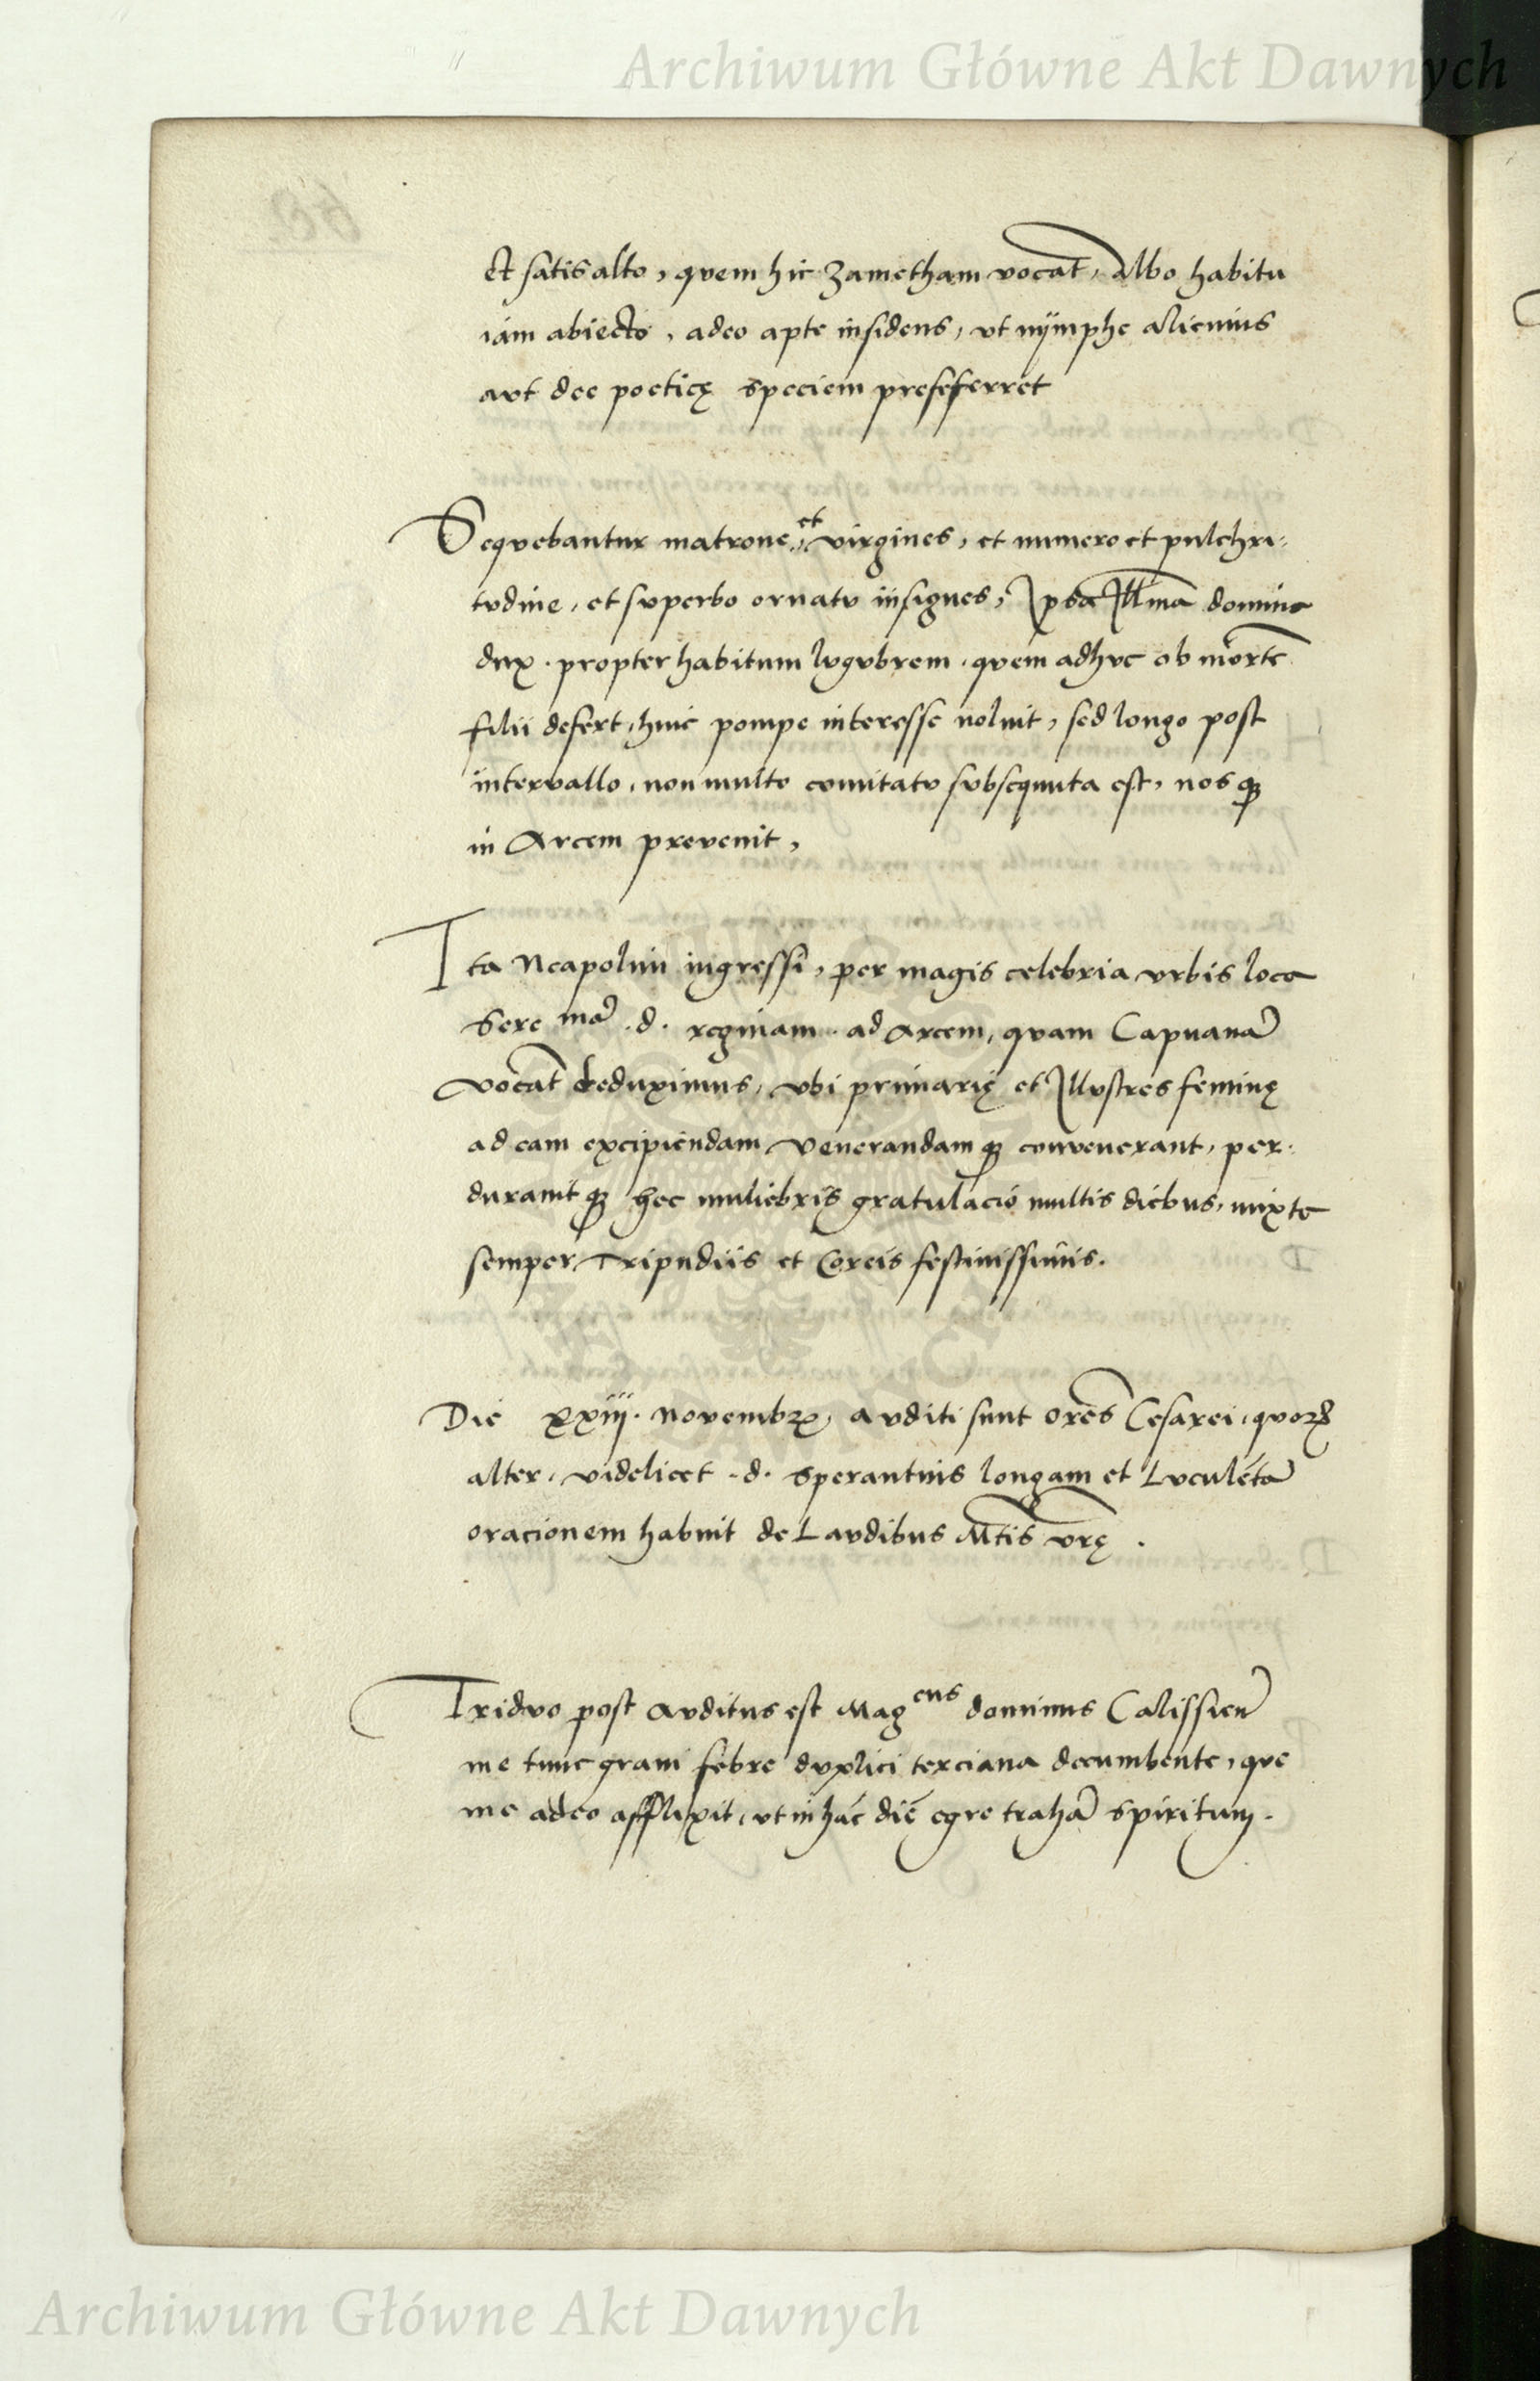 Archiwum Główne Akt Dawnych
et satis alto, quem hic zametham vocāt, albo habitu
iam abiecto, adeo apte insidens, vt nÿmphe alicuius
avt dee poeticę speciem preseferret
Seqvebantur matrone, et virgines, et numero et pulchri-
tvdine, et svperbo ornatv insignes, Ipsa Illma domina
dux. propter habitum lvgvbrem. qvem adhvc ob mortē
filii defert, huic pompe interesse noluit, sed longo post
intervallo, non multo comitatv svbsequuta est, nosq₃
in Arcem prevenit,
Ita Neapolim ingressi, per magis celebria vrbis loca
Sere mā .d. reginam. ad Arcem, qvam Capuanā
vocāt deduximus, vbi primarię et Illvstres feminę
ad eam excipiendam venerandamq₃ convenerant, per-
duravitq₃ hec muliebris gratulacio multis diebus, mixte
semper Tripudiis et Coreis festivissimis.
Die xxiij. Novembr, avditi sunt orēs Cesarei, qvorꝝ
alter, videlicet .d. sperantius longam et Lvculētā
oracionem habuit de Lavdibus Mtis vrę.
Tridvo post avditus est Mag cus dominus Calissień
me tunc gravi febre dvplici terciana decumbente, que
me adeo afflixit, vt in hāc diē egre trahā spiritum.
Archiwum Główne Akt Dawnych